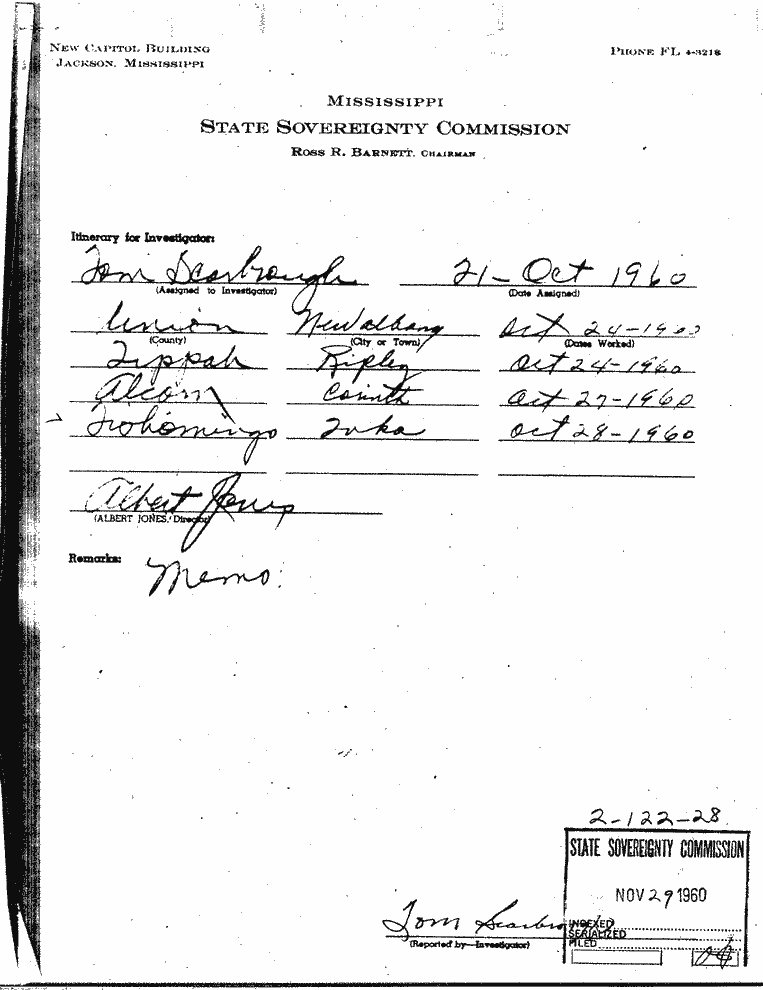 NEW CAPITOL BUILDING
JACKSON, MISSISSIPPI
PHONE FL 4-3218
MISSISSIPPI
STATE SOVEREIGNTY COMMISSION
ROSS R. BARNETT, CHAIRMAN
Itinerary for Investigator:
Tom Scarbrough 21-Oct 1960
(Assigned to Investigator) (Date Assigned)
Union New albany Oct 24-1960
(County) (City or Town) (Dates Worked)
Tippah Ripley Oct 24-1960
Alcorn Corinth Oct 27-1960
Tishomingo Iuka Oct 28-1960
Albert Jones
(ALBERT JONES, Director)
Remarks: Memo:
2-122-28
STATE SOVEREIGNTY COMMISSION
NOV 29 1960
INDEXED
SERIALIZED
FILED
Tom Scarbrough
(Reported by—Investigator)